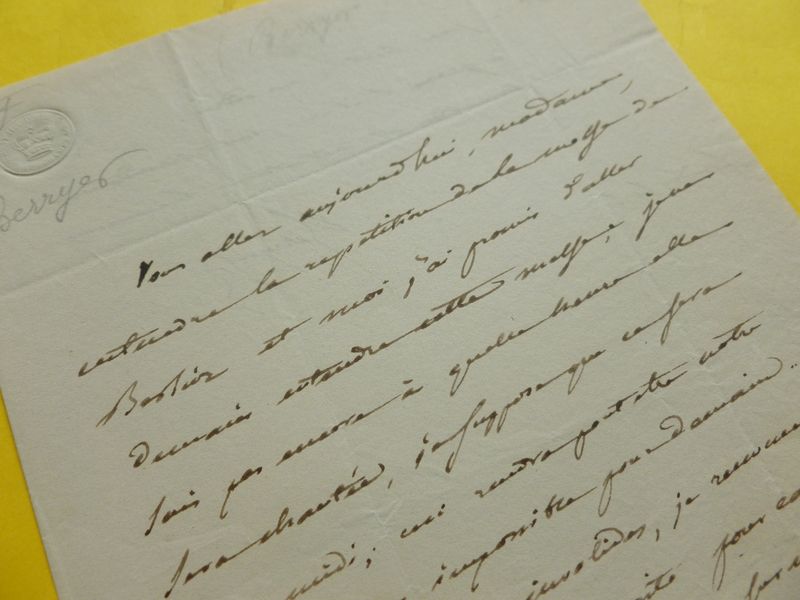 Berryer
Berryer
Vous allez aujourd'hui, madame,
entendre la repetition de la messe de
Berlioz et moi j'ai promis d'aller
demain entendre cette messe, je ne
sais pas encore à quelle heure elle
sera chantée, je suppose que ce sera
midi; ceci rendra peut etre notre
impossible pour demain..
invalides, je
pour